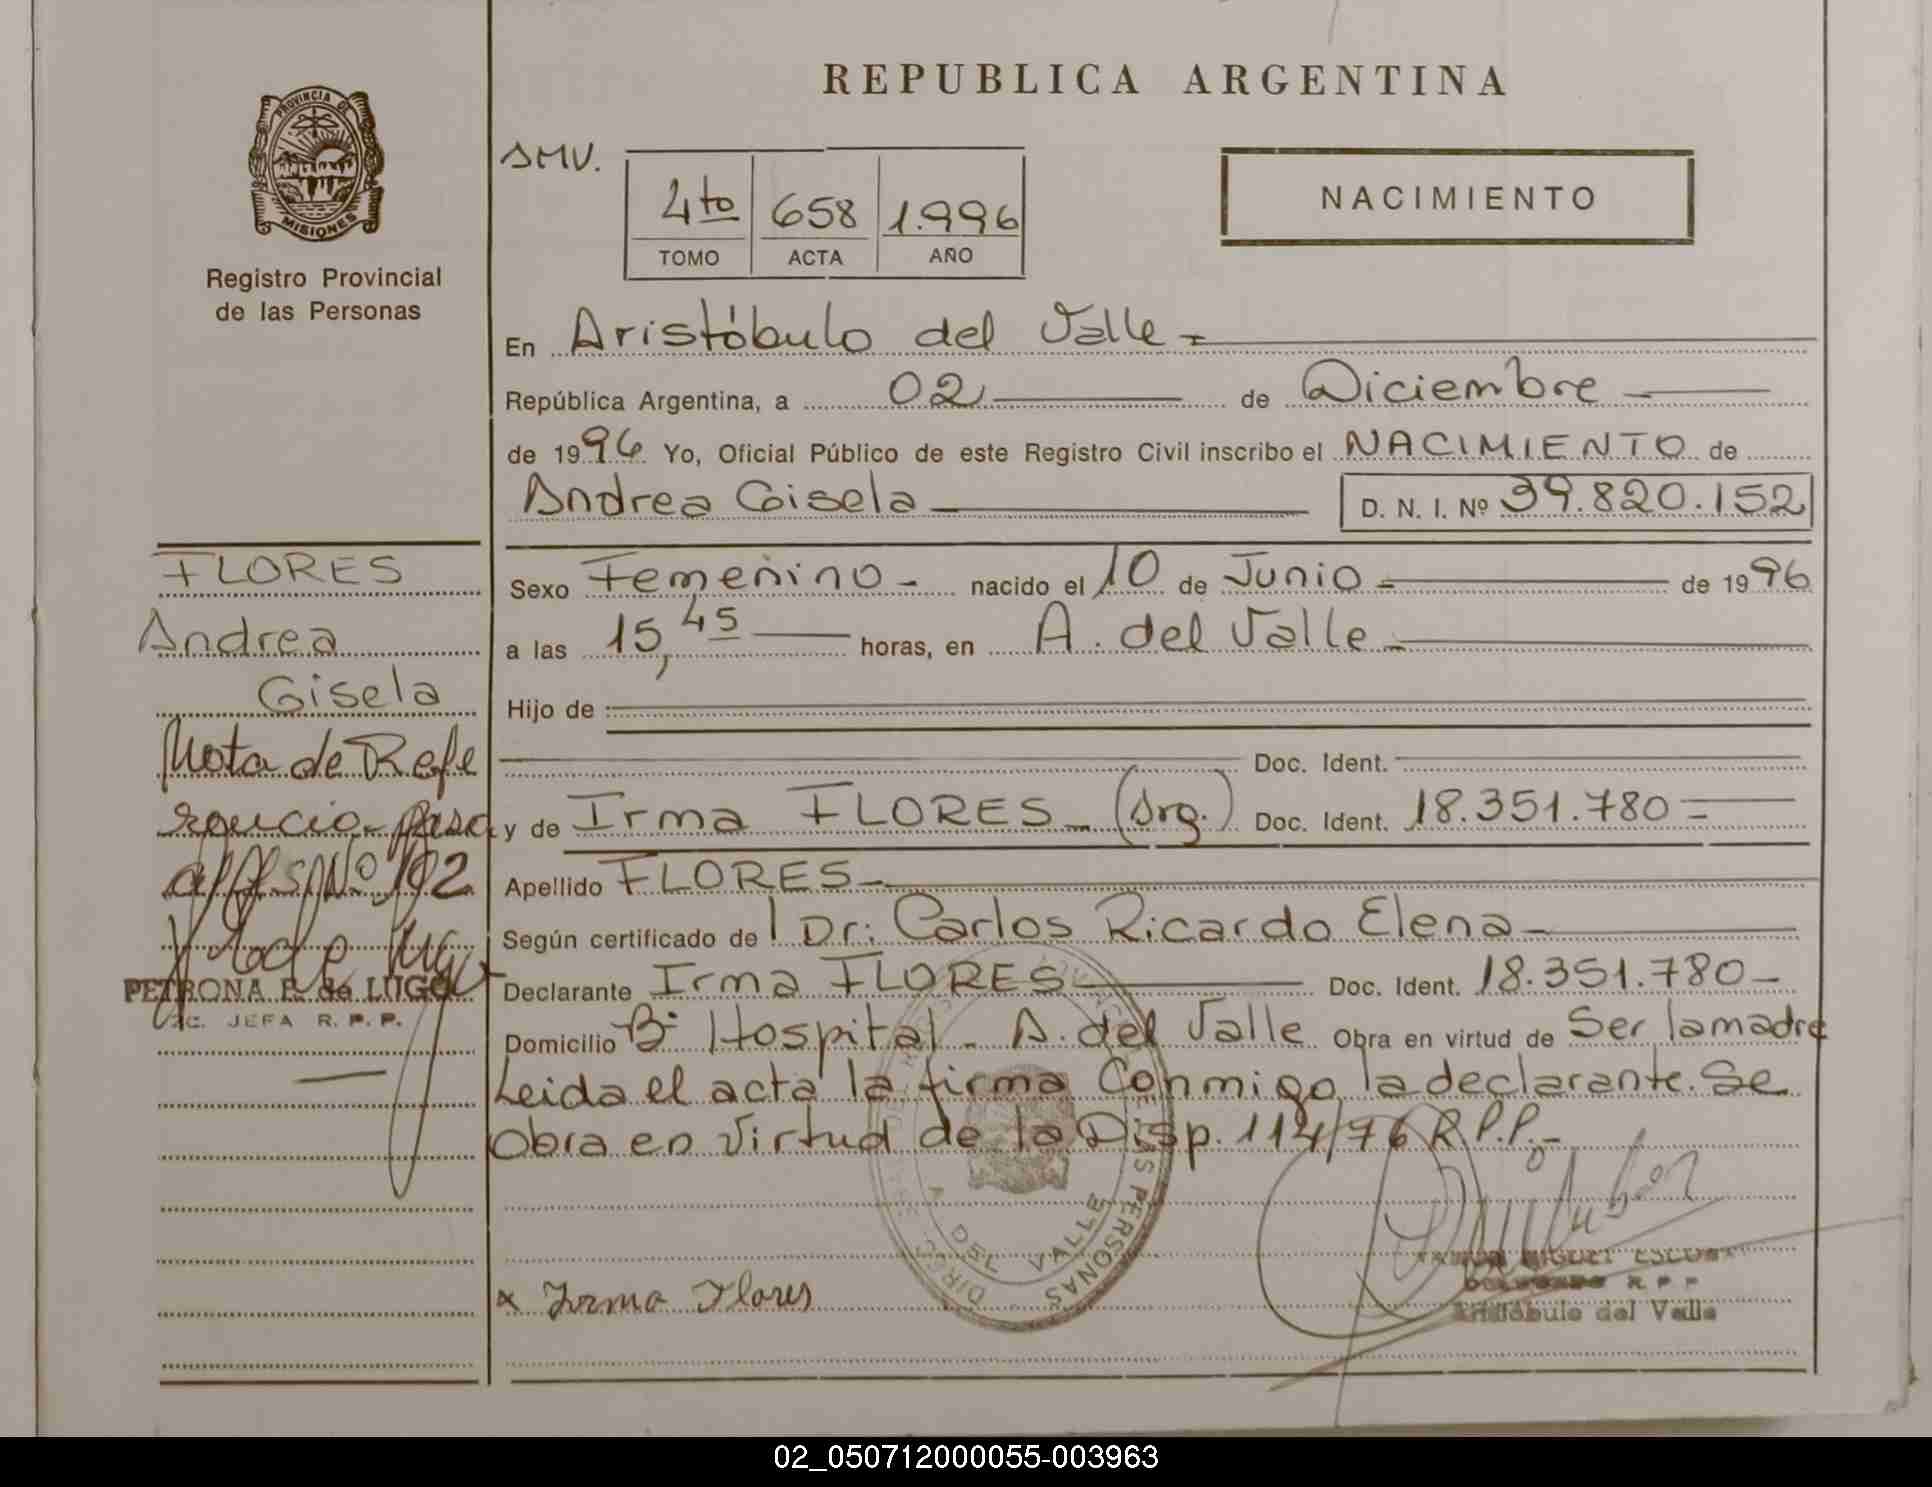 REPUBLICA ARGENTINA
PROVINCIA DE
MISIONES
Registro Provincial
de las Personas
SMV.
4to 658 1.996
TOMO ACTA AÑO
NACIMIENTO
En Aristóbulo del Valle =
República Argentina, a 02 de Diciembre
de 1996 Yo, Oficial Público de este Registro Civil inscribo el NACIMIENTO de
Andrea Gisela D. N. I. Nº 39.820.152
Sexo Femenino - nacido el 10 de Junio = de 1996
a las 15,45 horas, en A. del Valle -
Hijo de
Doc. Ident.
y de Irma FLORES - (Arg.) Doc. Ident. 18.351.780 =
Apellido FLORES -
Según certificado de Dr: Carlos Ricardo Elena -
Declarante Irma FLORES - Doc. Ident. 18.351.780 -
Domicilio Bº Hospital - A. del Valle Obra en virtud de Ser la madre
Leida el acta la firma Conmigo la declarante. Se
Obra en Virtud de la Disp. 114/76 R.P.P. -
x Irma Flores
DEL VALLE
PERSONAS
MIGUEL
R P P
Aristóbulo del Valle
FLORES
Andrea
Gisela
Nota de Refe
rencia - Pasa
al Nº 192
PETRONA F. de LUGO
JEFA R. P. P.
02_050712000055-003963